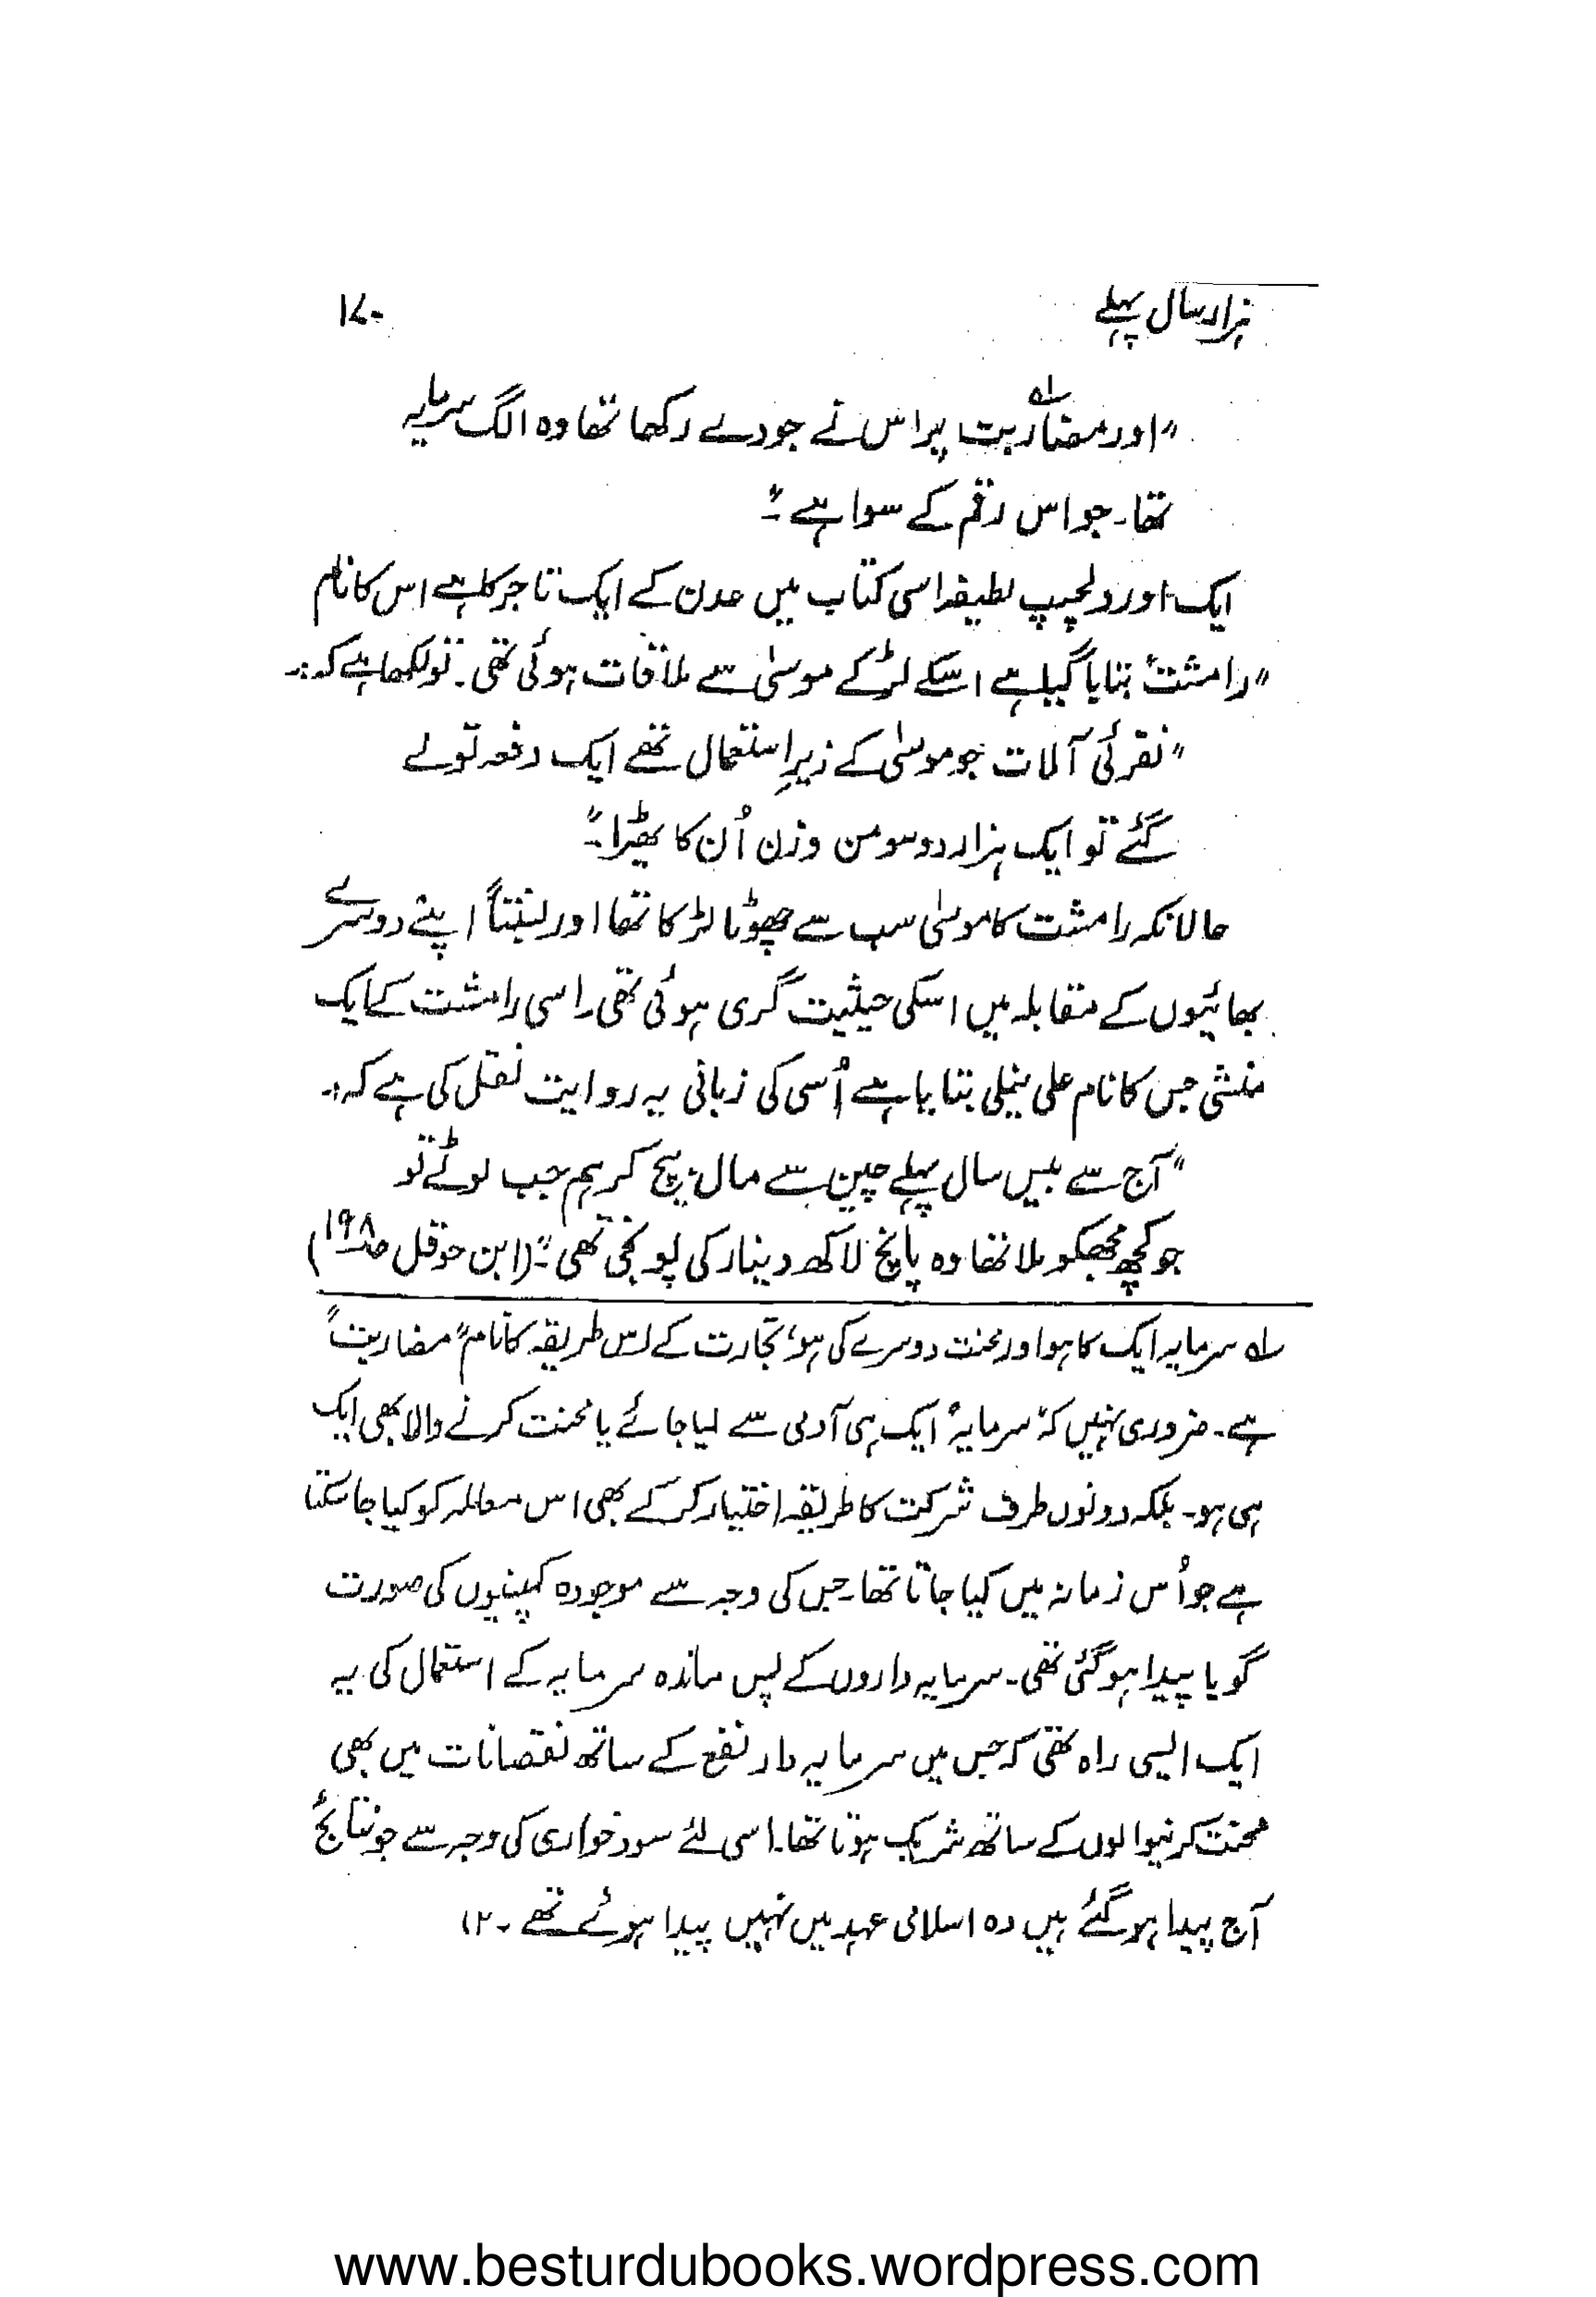 ہزار سال پہلے ۱۷۰
"اور مضاربت؂۱ پر اس نے جو دے رکھا تھا وہ الگ سرمایہ
تھا۔ جو اس رقم کے سوا ہے"۔
ایک اور دلچسپ لطیفہ اسی کتاب میں عدن کے ایک تاجر کا ہے اس کا نام
"رامشت" بتایا گیا ہے اسکے لڑکے موسیٰ سے ملاقات ہوئی تھی۔ تو لکھا ہے کہ:۔
"نقرئی آلات جو موسیٰ کے زیرِ استعمال تھے ایک دفعہ تولے
گئے تو ایک ہزار دو سو من وزن اُن کا ٹھیرا"۔
حالانکہ رامشت کا موسیٰ سب سے چھوٹا لڑکا تھا اور یقیناً اپنے دوسرے
بھائیوں کے مقابلہ میں اسکی حیثیت گری ہوئی تھی۔ اسی رامشت کے ایک
منشی جس کا نام علی نیلی بتایا ہے اُسی کی زبانی یہ روایت نقل کی ہے کہ:۔
"آج سے بیس سال پہلے چین سے مال بیچ کر ہم جب لوٹے تو
جو کچھ مجھکو ملا تھا وہ پانچ لاکھ دینار کی پونجی تھی"۔ (ابن حوقل صـ۱۹۸)
؂۱ سرمایہ ایک کا ہو اور محنت دوسرے کی ہو، تجارت کے اس طریقہ کا نام "مضاربت"
ہے۔ ضروری نہیں کہ "سرمایہ" ایک ہی آدمی سے لیا جائے یا محنت کرنے والا بھی ایک
ہی ہو۔ بلکہ دونوں طرف شرکت کا طریقہ اختیار کر کے بھی اس معاملہ کو کیا جا سکتا
ہے جو اُس زمانہ میں کیا جاتا تھا۔ جس کی وجہ سے موجودہ کمپنیوں کی صورت
گویا پیدا ہو گئی تھی۔ سرمایہ داروں کے پس ماندہ سرمایہ کے استعمال کی یہ
ایک ایسی راہ تھی کہ جس میں سرمایہ دار نفع کے ساتھ نقصانات میں بھی
محنت کرنیوالوں کے ساتھ شریک ہوتا تھا۔ اسی لئے سود خواری کی وجہ سے جو نتائج
آج پیدا ہو گئے ہیں وہ اسلامی عہد میں نہیں پیدا ہوئے تھے۔ ۱۲
www.besturdubooks.wordpress.com